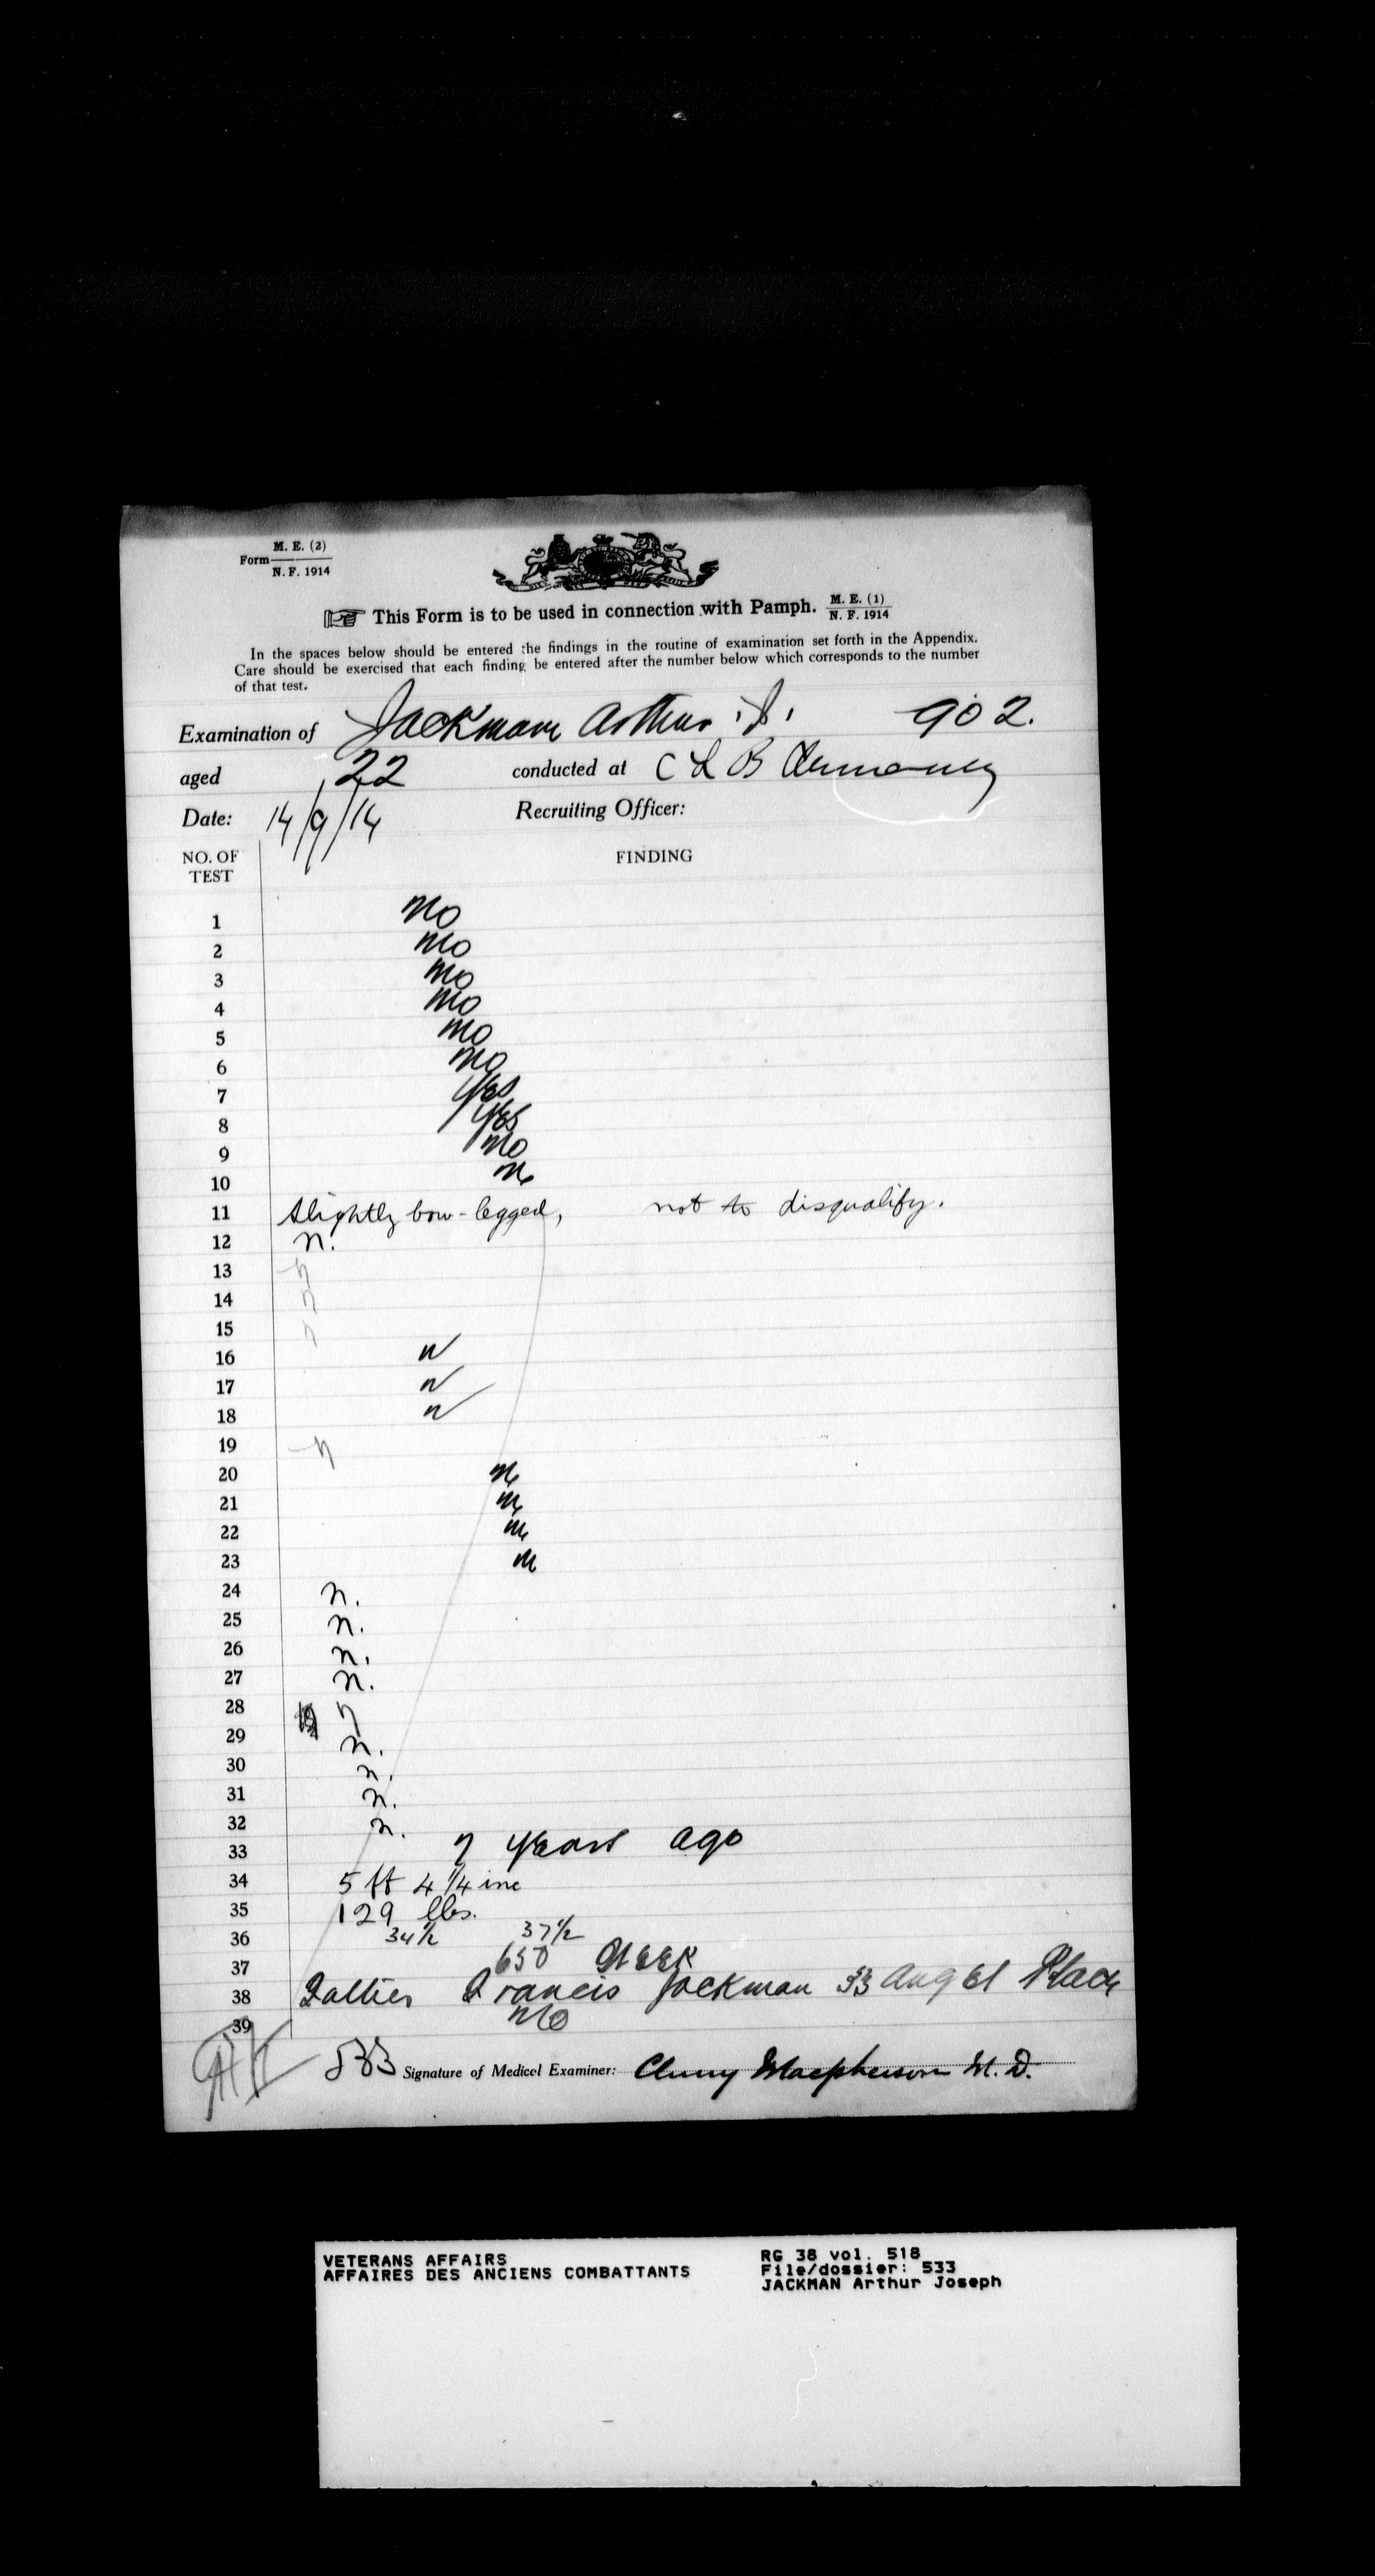 Form M. E. (2)
N. F. 1914
This Form is to be used in connection with Pamph. M. E. (1)
N. F. 1914
In the spaces below should be entered the findings in the routine of examination set forth in the Appendix.
Care should be exercised that each finding be entered after the number below which corresponds to the number
of that test.
Examination of Jackman Arthur . J. 902.
aged 22 conducted at C L B Armoury
Date: 14/9/14 Recruiting Officer:
NO. OF TEST FINDING
1 No
2 No
3 No
4 No
5 No
6 No
7 Yes
8 Yes
9 No
10 N
11 Slightly bow-legged, not to disqualify.
12 n.
13
14
15
16 n
17 n
18 n
19 n
20 n
21 n
22 n
23 n
24 n.
25 n.
26 n.
27 n.
28
29 n.
30 n.
31 n.
32 n.
33 7 years ago
34 5 ft 4 1/4 inc
35 129 lbs.
36 34 1/2 37 1/2
37 650 week
38 Father Francis Jackman 33 Angel Place
39 No
533 Signature of Medical Examiner: Cluny Macpherson M. D.
VETERANS AFFAIRS
AFFAIRES DES ANCIENS COMBATTANTS
RG 38 vol. 518
File/dossier: 533
JACKMAN Arthur Joseph